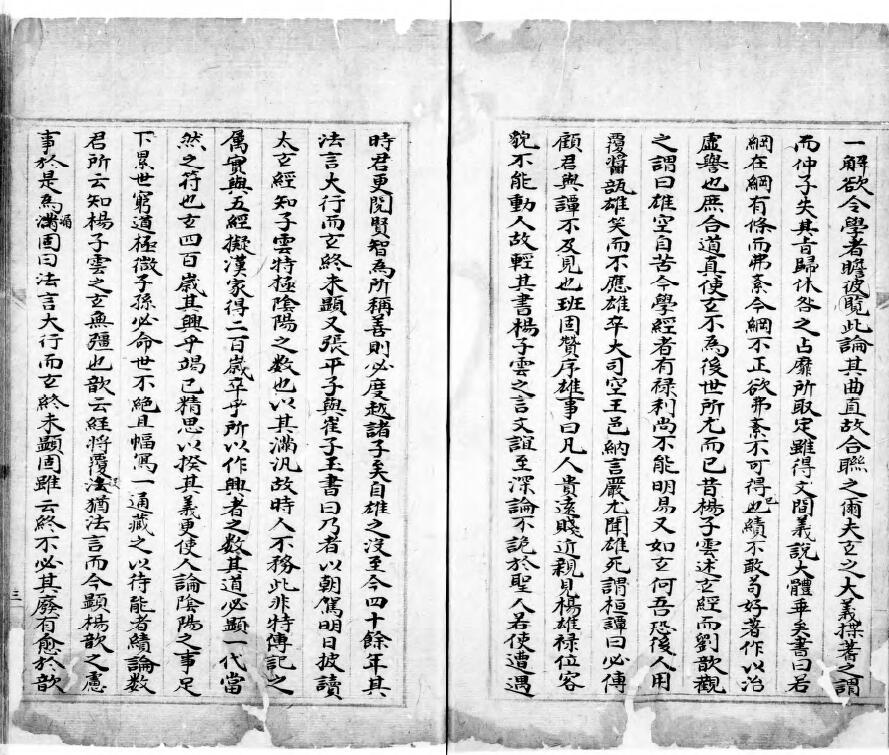 一解欲令學者瞻彼覽此論其曲直故合聯之爾夫玄之大義揲蓍之謂
而仲子失其旨歸休咎之占靡所取定雖得文間義說大體乖矣書曰若
綱在綱有條而弗紊今綱不正欲弗紊不可得也已績不敢苟好著作以治
虛譽也庶合道真使玄不為後世所尤而已昔楊子雲述玄經而劉歆觀
之謂曰雄空自苦今學經者有祿利尚不能明易又如玄何吾恐後人用
覆醬瓿雄笑而不應雄卒大司空王邑納言嚴尤聞雄死謂桓譚曰必傳
顧君與譚不及見也班固贊序雄事曰凡人貴遠賤近親見楊雄祿位容
貌不能動人故輕其書楊子雲之言文誼至深論不詭於聖人若使遭遇
時君更閱賢智為所稱善則必度越諸子矣自雄之沒至今四十餘年其
法言大行而玄終未顯又張平子與崔子玉書曰乃者以朝駕明日披讀
太玄經知子雲特極陰陽之數也以其滿汎故時人不務此非特傳記之
屬實與五經擬漢家得二百歲卒乎所以作興者之數其道必顯一代當
然之符也玄四百歲其興乎竭己精思以揆其義更使人論陰陽之事足
下累世窮道極微子孫必命世不絕且幅寫一通藏之以待能者績論數
君所云知楊子雲之玄無彊也歆云經將覆沒猶法言而今顯楊歆之慮
事於是為漏固曰法言大行而玄終未顯固雖云終不必其廢有愈於歆
三